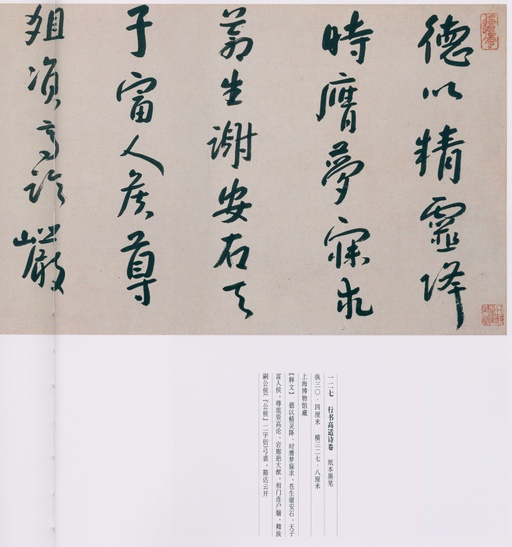 德以精靈降
時膺夢寐求
蒼生謝安石天
子富人侯尊
俎資高論巖
一二七 行书高适诗卷 纸本墨笔
纵三〇·四厘米 横三二七·八厘米
上海博物馆藏
【释文】 德以精灵降、时膺梦寐求、苍生谢安石、天子
富人侯、尊俎资高论、岩廊挹大猷、相门连户牖、卿族
嗣公侯[『公侯』二字 弓裘、豁达云开